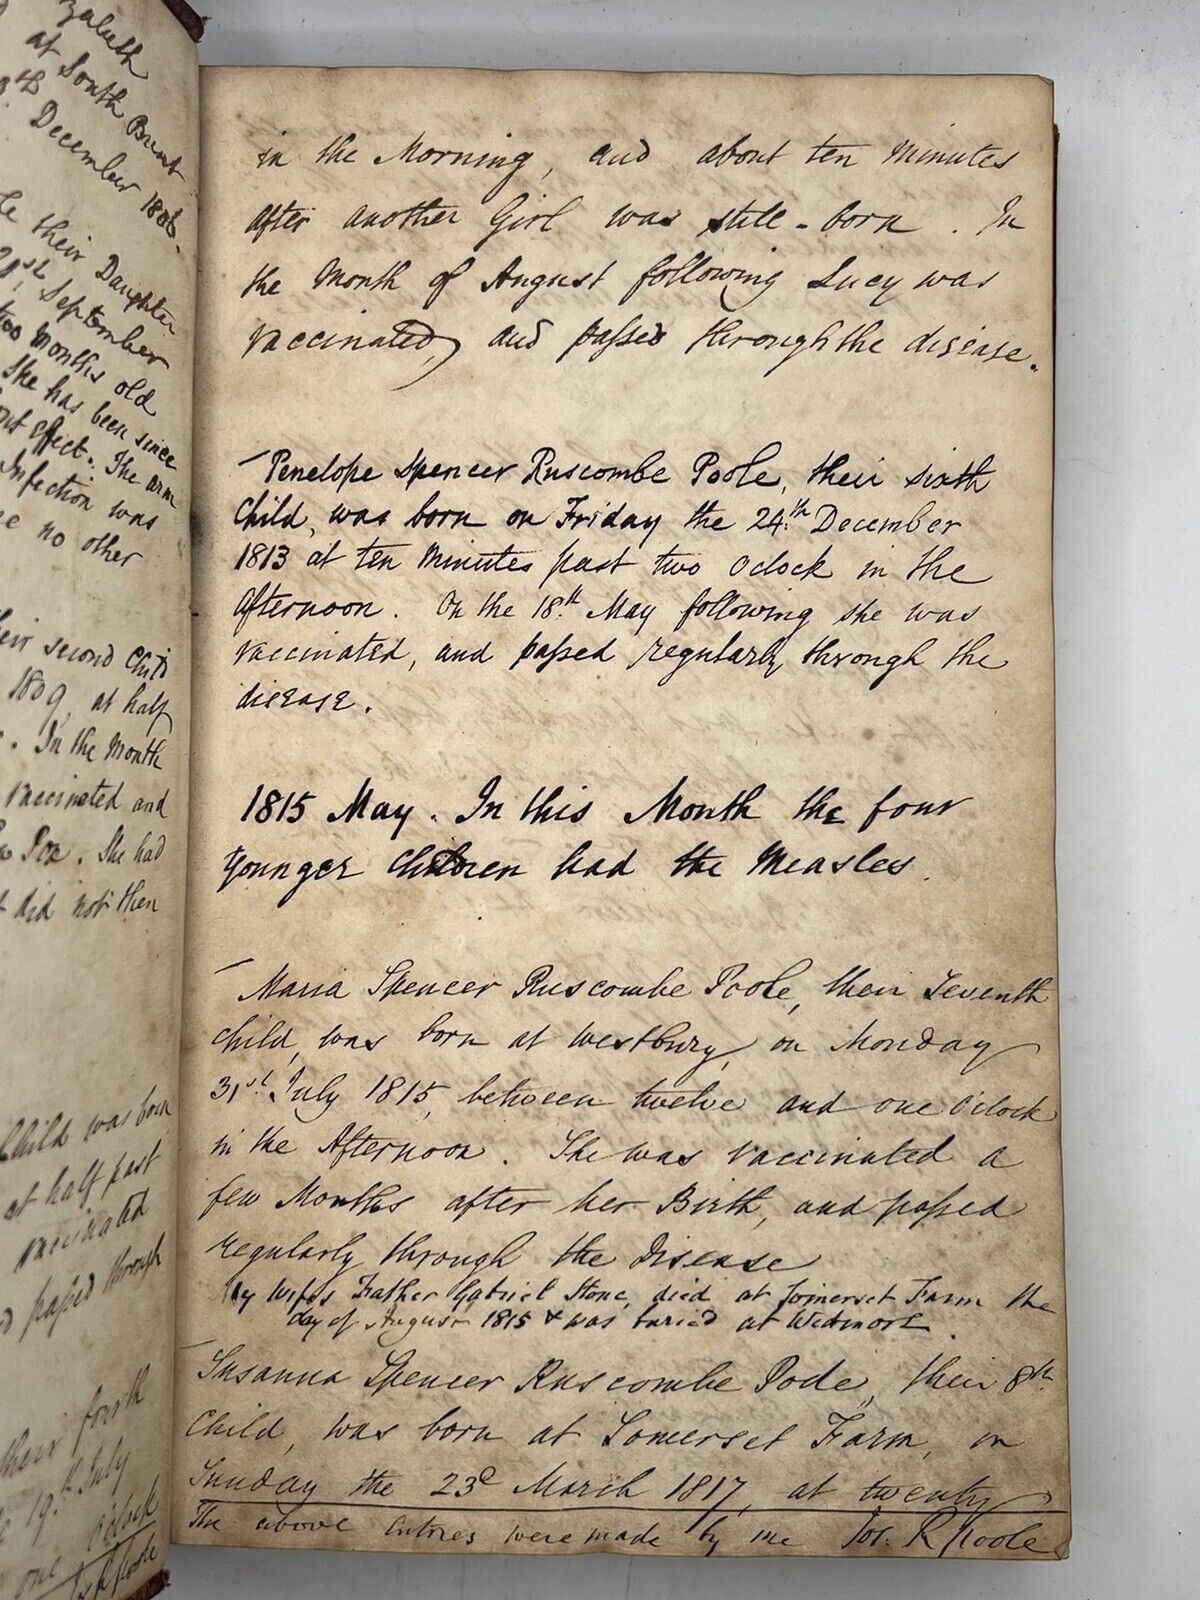 zabeth
at South Brent
December 1806.
their Daughter
21st September
two Months old
She has been since
out effect. The arm
Infection was
no other
their second Child
1809, at half
. In the Month
vaccinated and
Pox. She had
did not then
Child was born
at half past
vaccinated
passed through
their fourth
19th July
one O'clock
in the Morning, and about ten Minutes
after another Girl was still-born. In
the Month of August following Lucy was
vaccinated, and passed through the disease.
Penelope Spencer Ruscombe Poole, their sixth
Child, was born on Friday the 24th December
1813 at ten Minutes past two oclock in the
Afternoon. On the 18th May following she was
vaccinated, and passed regularly through the
disease.
1815 May. In this Month the four
Younger Children had the Measles.
Maria Spencer Ruscombe Poole, their Seventh
Child, was born at Westbury, on Monday
31st July 1815, between twelve and one o'clock
in the Afternoon. She was vaccinated a
few Months after her Birth, and passed
regularly through the Disease
My Wife's Father Gabriel Stone, died at Somerset Farm the
day of August 1815 & was buried at Wedmore.
Susanna Spencer Ruscombe Poole, their 8th
Child, was born at Somerset Farm, on
Sunday the 23d March 1817, at twenty
The above Entries were made by me Jos. R Poole